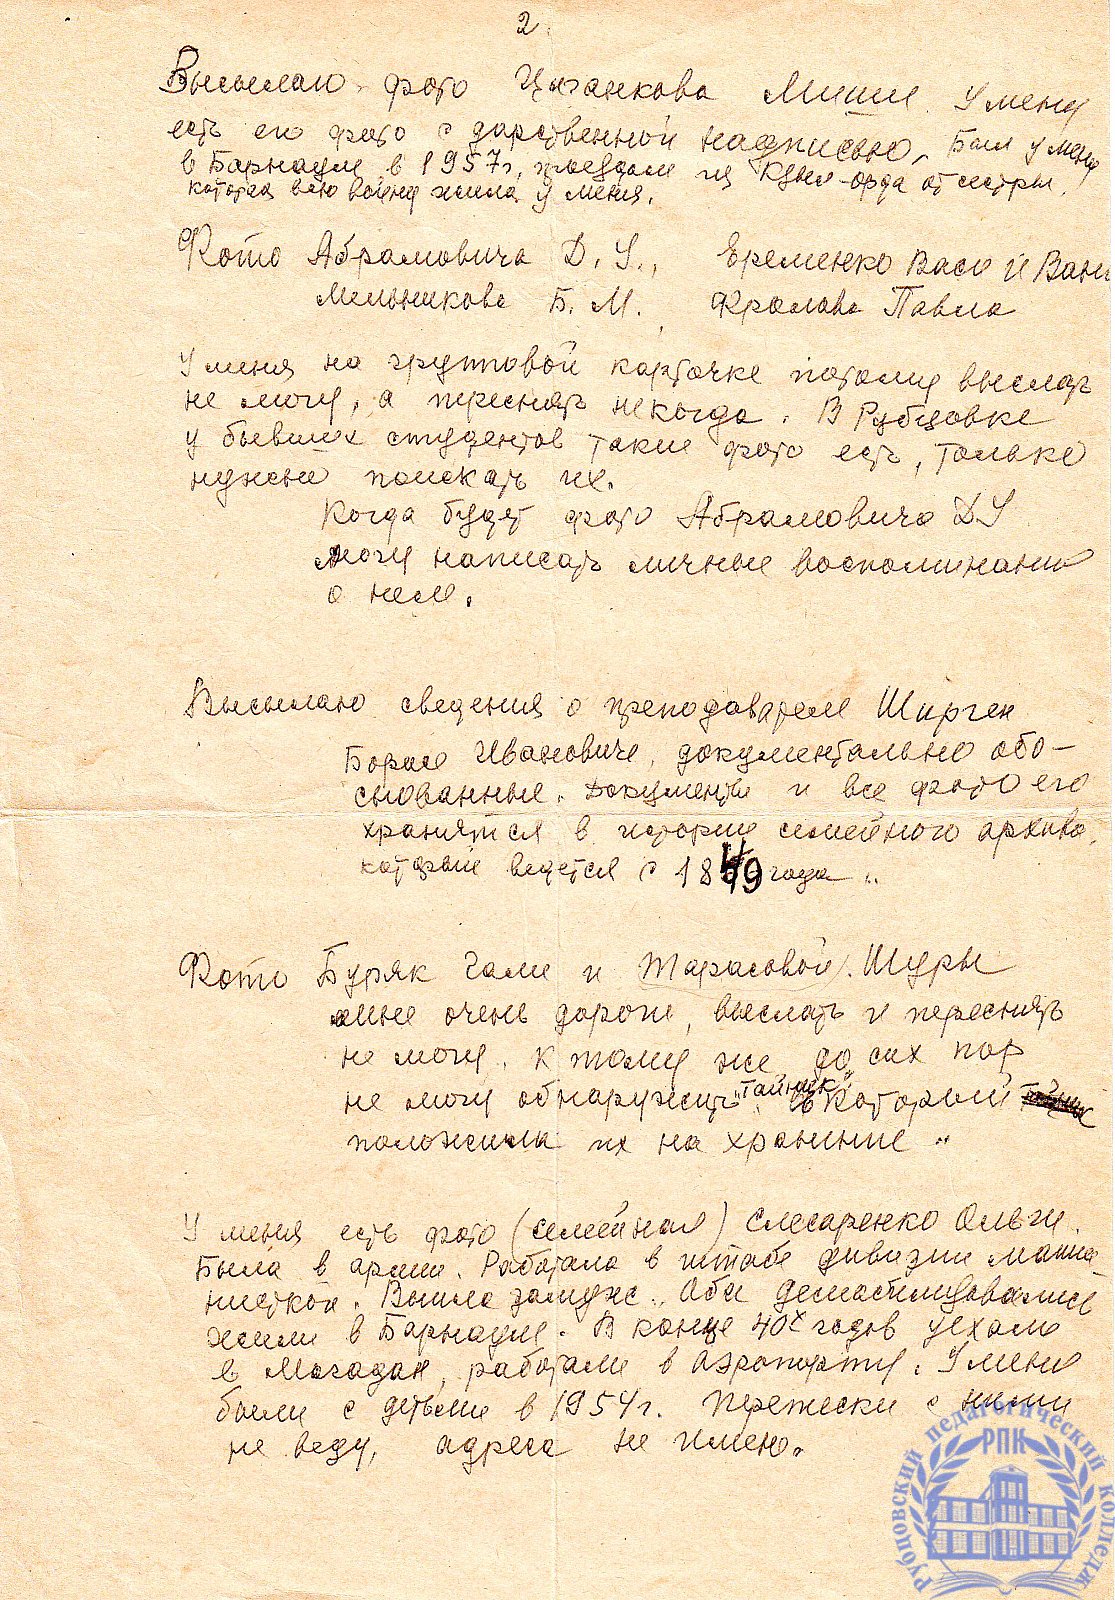 2.
Высылаю фото Цыганкова Миши. У меня
есть его фото с дарственной надписью. Был у меня
в Барнауле в 1957г, проездом из Кзыл-орда от сестры,
которая всю войну жила у меня.
Фото Абрамовича Д. У., Еременко Васи и Вани
Мельникова Б. М. Фролова Павла
У меня на групповой карточке потому выслать
не могу, а переснять некогда. В Рубцовке
у бывших студентов такие фото есть, только
нужно поискать их.
Когда будет фото Абрамовича ДУ
могу написать личные воспоминания
о нем.
Высылаю сведения о преподавателе Ширген
Борисе Ивановиче, документально обо-
снованные. Документы и все фото его
хранятся в истории семейного архива,
который ведется с 1849 года..
Фото Буряк Гали и Тарасовой Шуры
мне очень дороги, выслать и переснять
не могу. К тому же до сих пор
не могу обнаружить "тайник" в который
положила их на хранение..
У меня есть фото (семейная) Слесаренко Ольги.
Была в армии. Работала в штабе дивизии маши-
нисткой. Вышла замуж.. Оба демобилизовались
жили в Барнауле. В конце 40х годов уехали
в Магадан, работали в аэропорту. У меня
были с детьми в 1954г. Переписки с ними
не веду, адреса не имею.
Рубцовский педагогический колледж
РПК